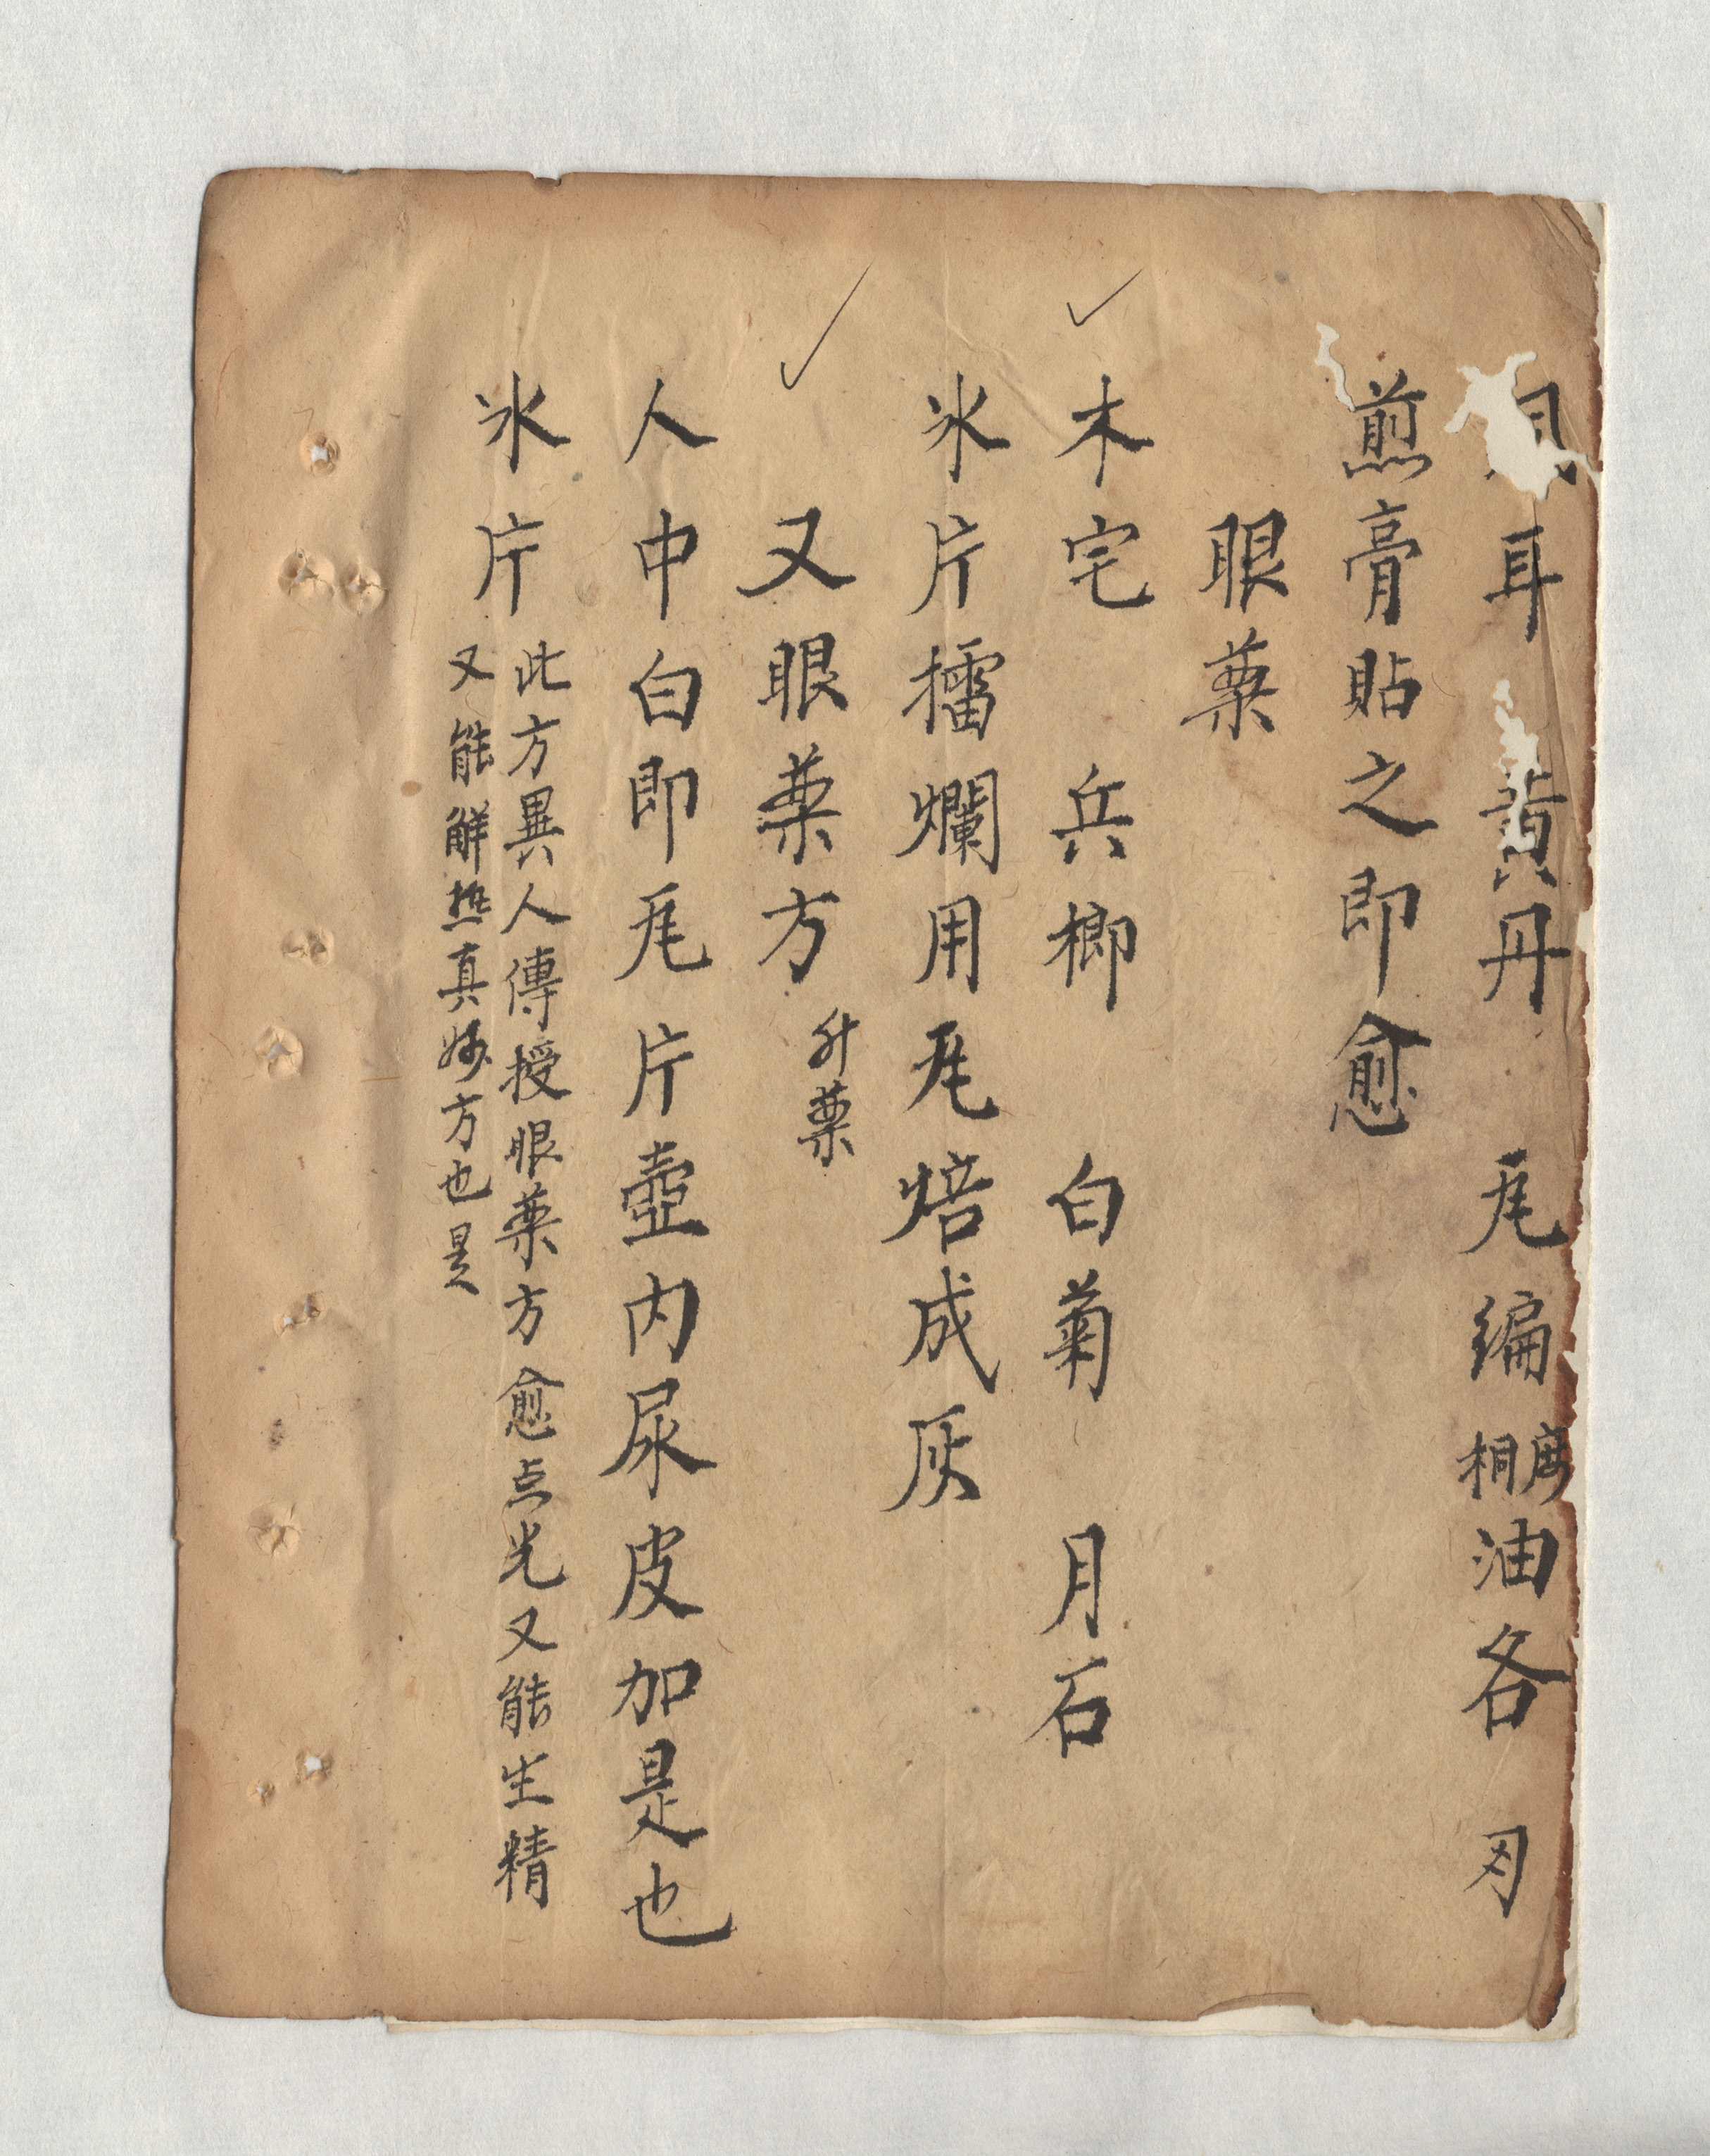 耳 黄丹 㡯編 麻桐油各刄
煎膏貼之即愈
眼薬
木宅 兵榔 白菊 月石
氷片擂爛用㡯焙成灰
又眼薬方 升薬
人中白即㡯片壺内尿皮加是也
氷片
此方異人傳授眼薬方愈点光又能生精
又能觧热真妙方也是